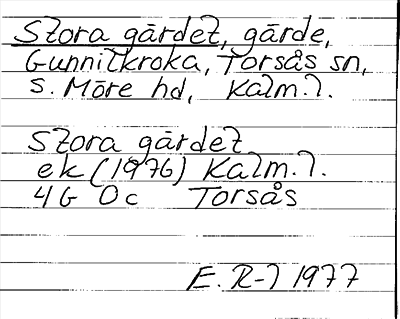 Stora gärdet, gärde,
Gunnilkroka, Torsås sn,
S. Möre hd, Kalm. l.
Stora gärdet
ek (1976) Kalm. l.
4G 0c Torsås
E. R-l 1977